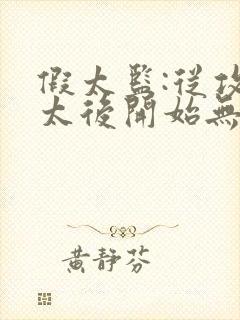 假太監:從攻
太後開始無
黃靜芬